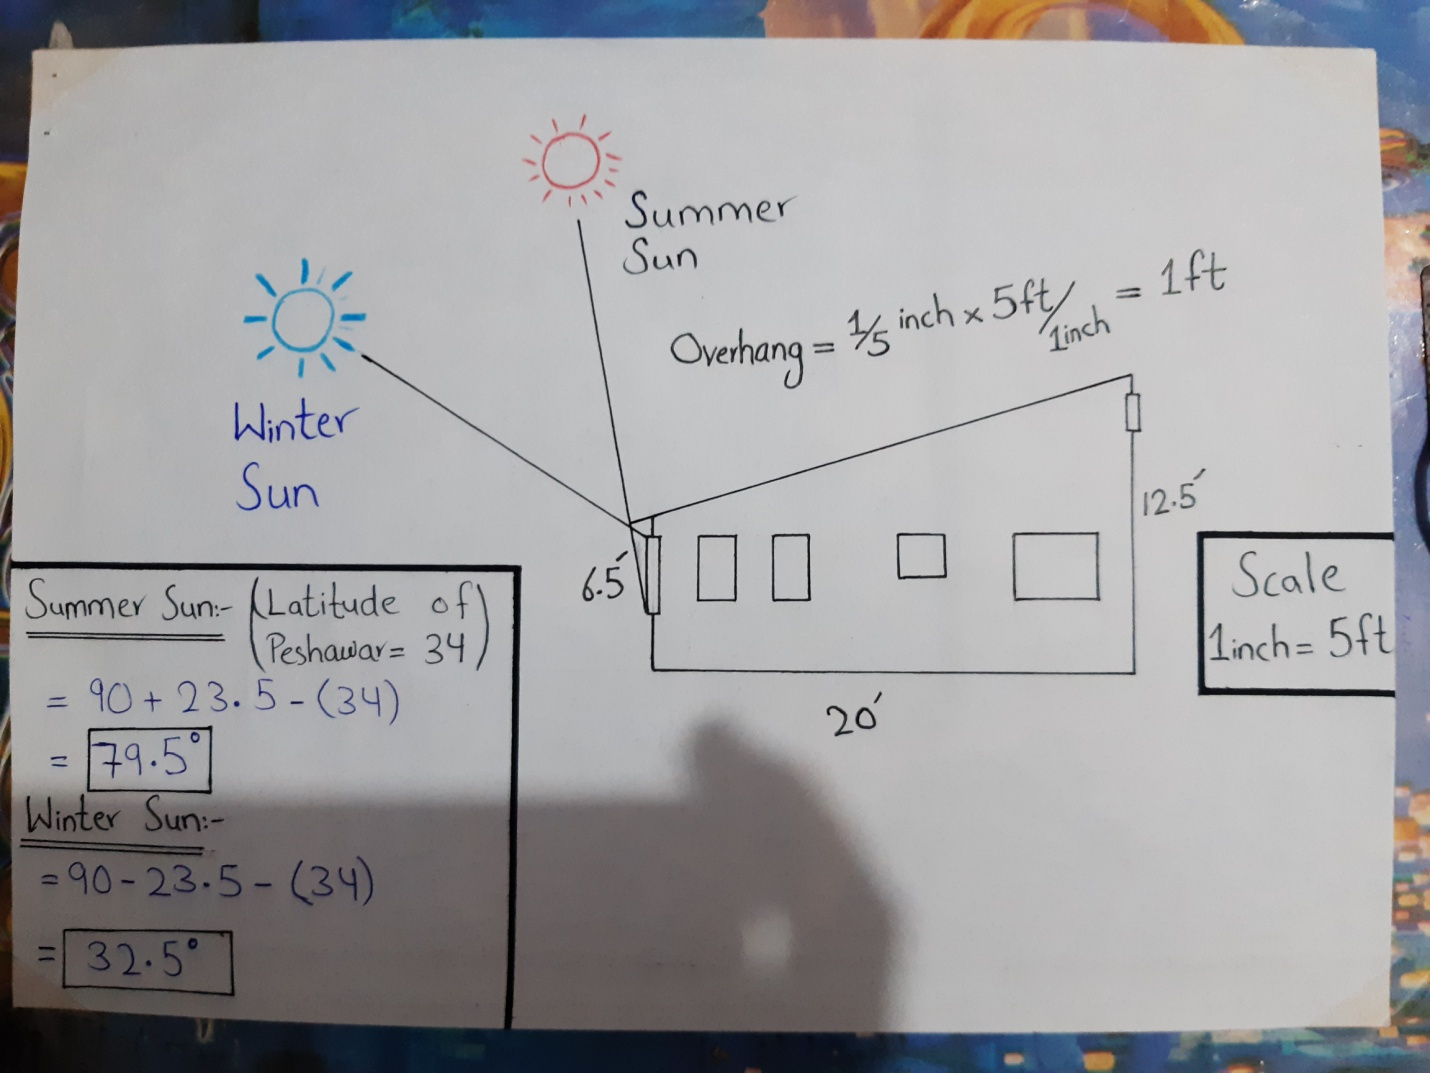 Summer
Sun
Winter
Sun
Overhang = 1/5 inch x 5ft/1inch = 1ft
6.5′
12.5′
20′
Scale
1inch = 5ft
Summer Sun:- (Latitude of
Peshawar = 34)
= 90 + 23.5 - (34)
= 79.5°
Winter Sun:-
= 90 - 23.5 - (34)
= 32.5°